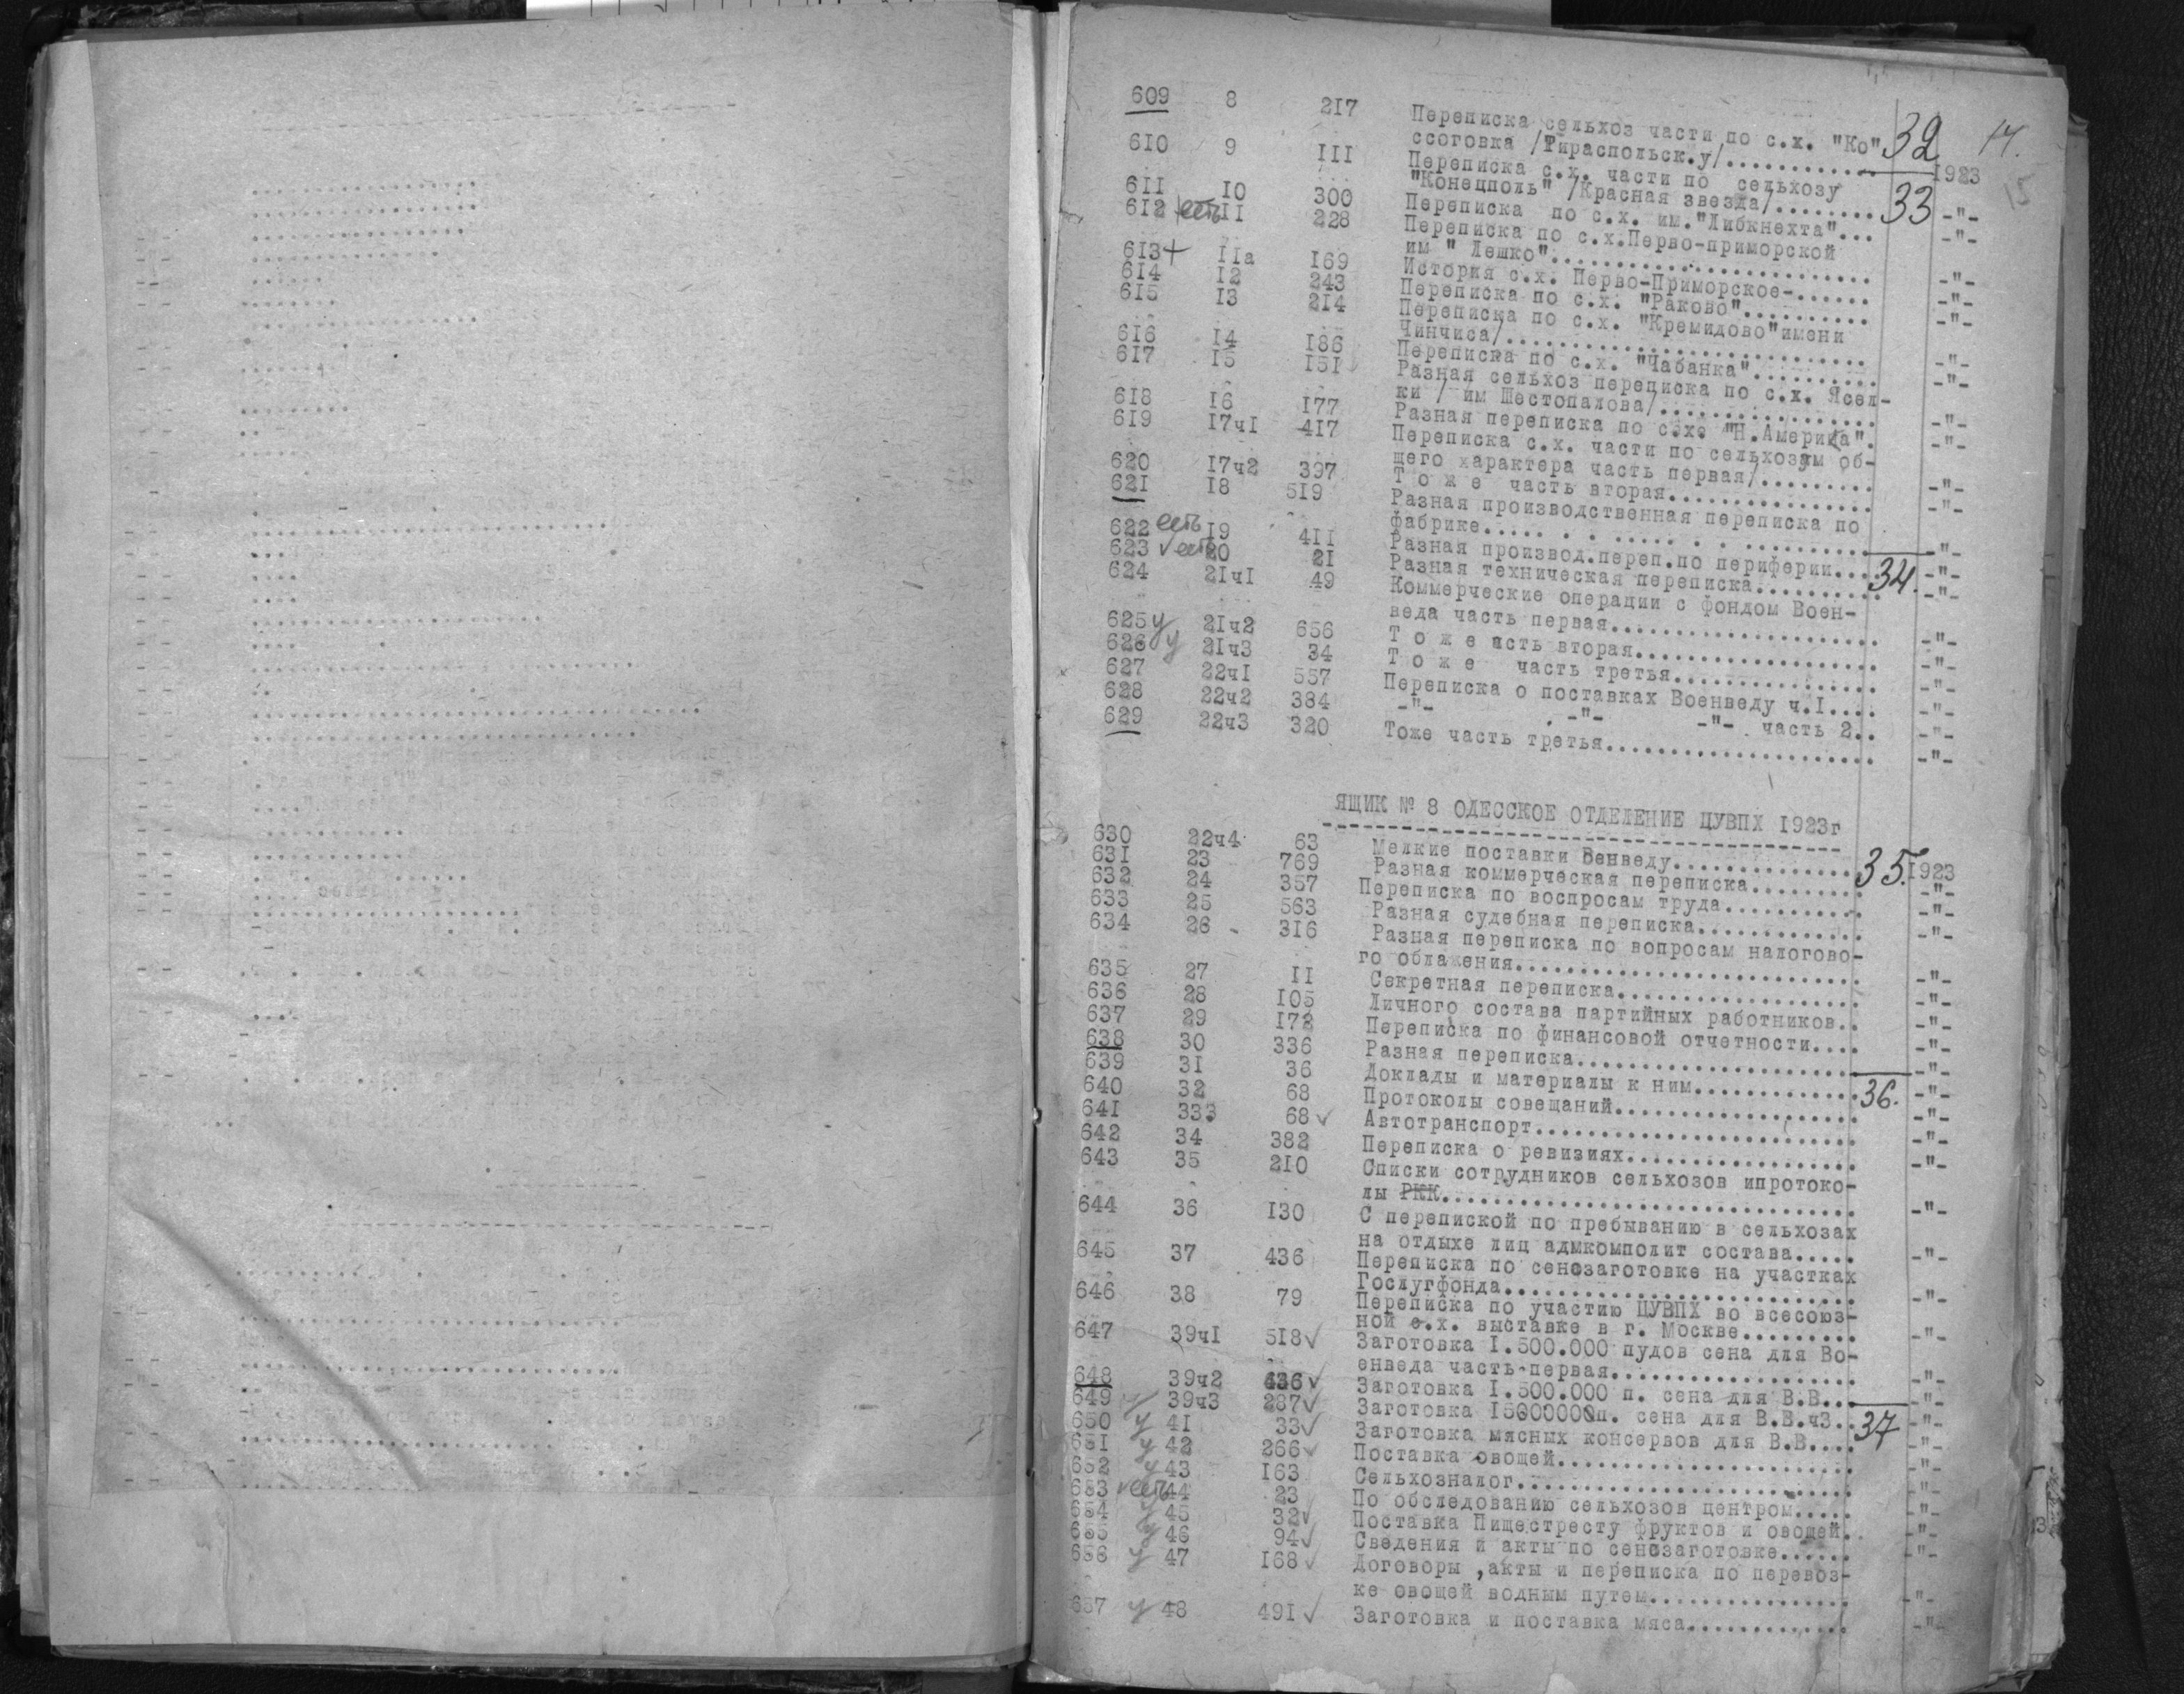 32 14.
15
609 8 217 Переписка сельхоз части по с.х. "Ко"
ссоговка /Тираспольск.у/........... 1923
610 9 111 Переписка с.х. части по сельхозу
"Конецполь" /Красная звезда/........ 33 -"-
611 10 300 Переписка по с.х. им."Либкнехта"... -"-
612 есть 11 228 Переписка по с.х.Перво-приморской
им " Лешко"........................ -"-
613+ 11а 169 История с.х. Перво-Приморское-...... -"-
614 12 243 Переписка по с.х. "Раково".......... -"-
615 13 214 Переписка по с.х. "Кремидово"имени
Чинчиса/........................... -"-
616 14 186 Переписка по с.х. "Чабанка".......... -"-
617 15 151 Разная сельхоз переписка по с.х. Ясел-
ки / им Шестопалова/................ -"-
618 16 177 Разная переписка по с.х. "Н.Америка". -"-
619 17ч1 417 Переписка с.х. части по сельхозам об-
щего характера часть первая/......... -"-
620 17ч2 397 Т о ж е часть вторая................ -"-
621 18 519 Разная производственная переписка по
фабрике..... . . ..... . . .......... -"-
622 есть 19 411 Разная произвад.переп.по периферии.... 34. -"-
623 √ есть 20 21 Разная техническая переписка.......... -"-
624 21ч1 49 Коммерческие операции с фондом Воен-
веда часть первая..................... -"-
625 у 21ч2 656 Т о ж е асть вторая................... -"-
626 у 21ч3 34 Т о ж е часть третья................ -"-
627 22ч1 557 Переписка о поставках Военведу ч.1.... -"-
628 22ч2 384 -"- -"- -"- часть 2.. -"-
629 22ч3 320 Тоже часть третья..................... -"-
ЯЩИК № 8 ОДЕССКОЕ ОТДЕЛЕНИЕ ЦУВПХ 1923г
630 22ч4 63 Мелкие поставки Венведу.............. 35. 1923
631 23 769 Разная коммерческая переписка......... -"-
632 24 357 Переписка по воспросам труда........... -"-
633 25 563 Разная судебная переписка............. -"-
634 26 316 Разная переписка по вопросам налогово-
го облажения.......................... -"-
635 27 11 Секретная переписка................... -"-
636 28 105 Личного состава партийных работников.. -"-
637 29 172 Переписка по финансовой отчетности.... -"-
638 30 336 Разная переписка...................... -"-
639 31 36 Доклады и материалы к ним............. 36. -"-
640 32 68 Протоколы совещаний................... -"-
641 333 68 √ Автотранспорт......................... -"-
642 34 382 Переписка о ревизиях.................. -"-
643 35 210 Списки сотрудников сельхозов ипротоко-
лы РКК................................ -"-
644 36 130 С перепиской по пребыванию в сельхозах
на отдыхе лиц адмкомполит состава..... -"-
645 37 436 Переписка по сенозаготовке на участках
Гослугфонда........................... -"-
646 38 79 Переписка по участию ЦУВПХ во всесоюз-
ной с.х. выставке в г. Москве......... -"-
647 39ч1 518 √ Заготовка 1.500.000 пудов сена для Во-
енведа часть-первая................... -"-
648 39ч2 436 √ Заготовка 1.500.000 п. сена для В.В... -"-
649 у 39ч3 287 √ Заготовка 15000000п. сена для В.В.ч3.. 37 -"-
650 у 41 33 √ Заготовка мясных консервов для В.В.... -"-
651 у 42 266 √ Поставка овощей....................... -"-
652 у 43 163 Сельхозналог.......................... -"-
653 √ есть 44 23 По обследованию сельхозов центром..... -"-
654 у 45 32 √ Поставка Пищестресту фруктов и овощей. -"-
655 у 46 94 √ Сведения и акты по сенозаготовке...... -"-
656 у 47 168 √ Договоры ,акты и переписка по перевоз-
ке овощей водным путем................ -"-
657 у 48 491 √ Заготовка и поставка мяса............. -"-